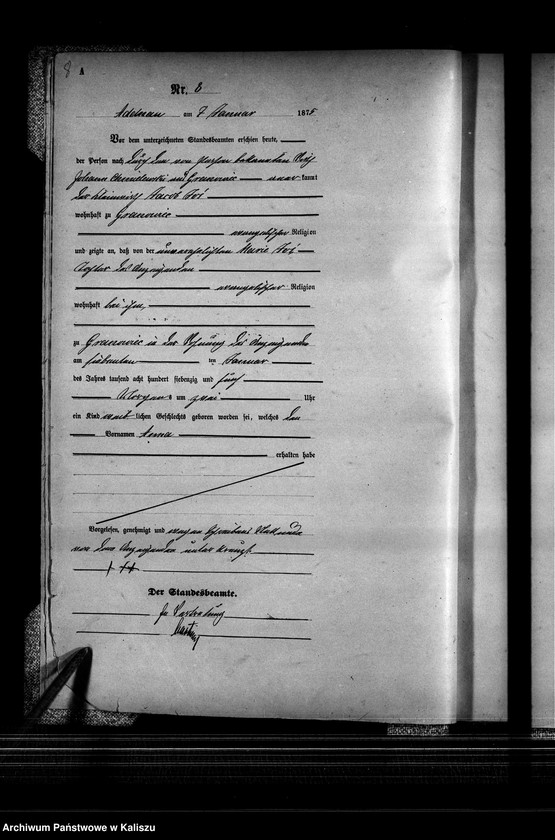 8 A
Nr. 8
Adelnau am 7 Januar 1875
Vor dem unterzeichneten Standesbeamten erschien heute,
der Person nach durch den von Person bekannten
Johann in Granowiec aner kannt
der Jacob
wohnhaft zu Granowiec
evangelischer Religion
und zeigte an, daß von der unverehelichten Marie
Tochter des Anzeigenden
evangelischer Religion
wohnhaft bei ihm,
zu Granowiec in der Wohnung des Anzeigenden
am siebenten ten Januar
des Jahres tausend acht hundert siebenzig und fünf
Morgens um zwei Uhr
ein Kind weib lichen Geschlechts geboren worden sei, welches den
Vornamen Anna
erhalten habe
Vorgelesen, genehmigt und wegen
von dem Anzeigenden unter kreuzt.
+ ++
Der Standesbeamte.
In Vertretung
Archiwum Państwowe w Kaliszu